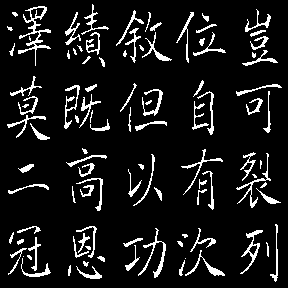 豈可裂列
位自有次
敘但以功
績既高恩
澤莫二冠